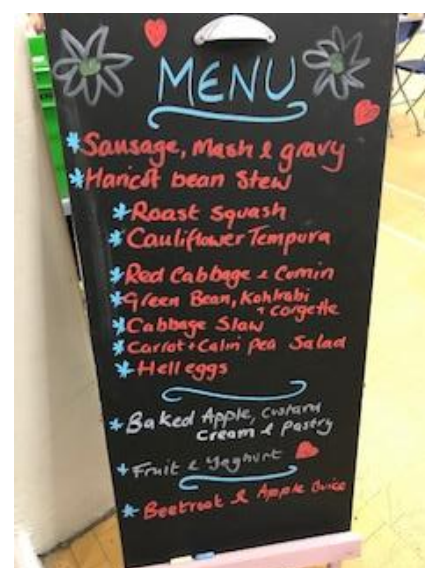 MENU
Sausage, Mash & gravy
Haricot bean Stew
Roast Squash
Cauliflower Tempura
Red Cabbage & Cumin
Green Bean, Kohlrabi
+ Corgette
Cabbage Slaw
Carrot + Calin pea Salad
Hell eggs
Baked Apple, Custard
Cream & Pastry
Fruit & Yoghurt
Beetroot & Apple Juice